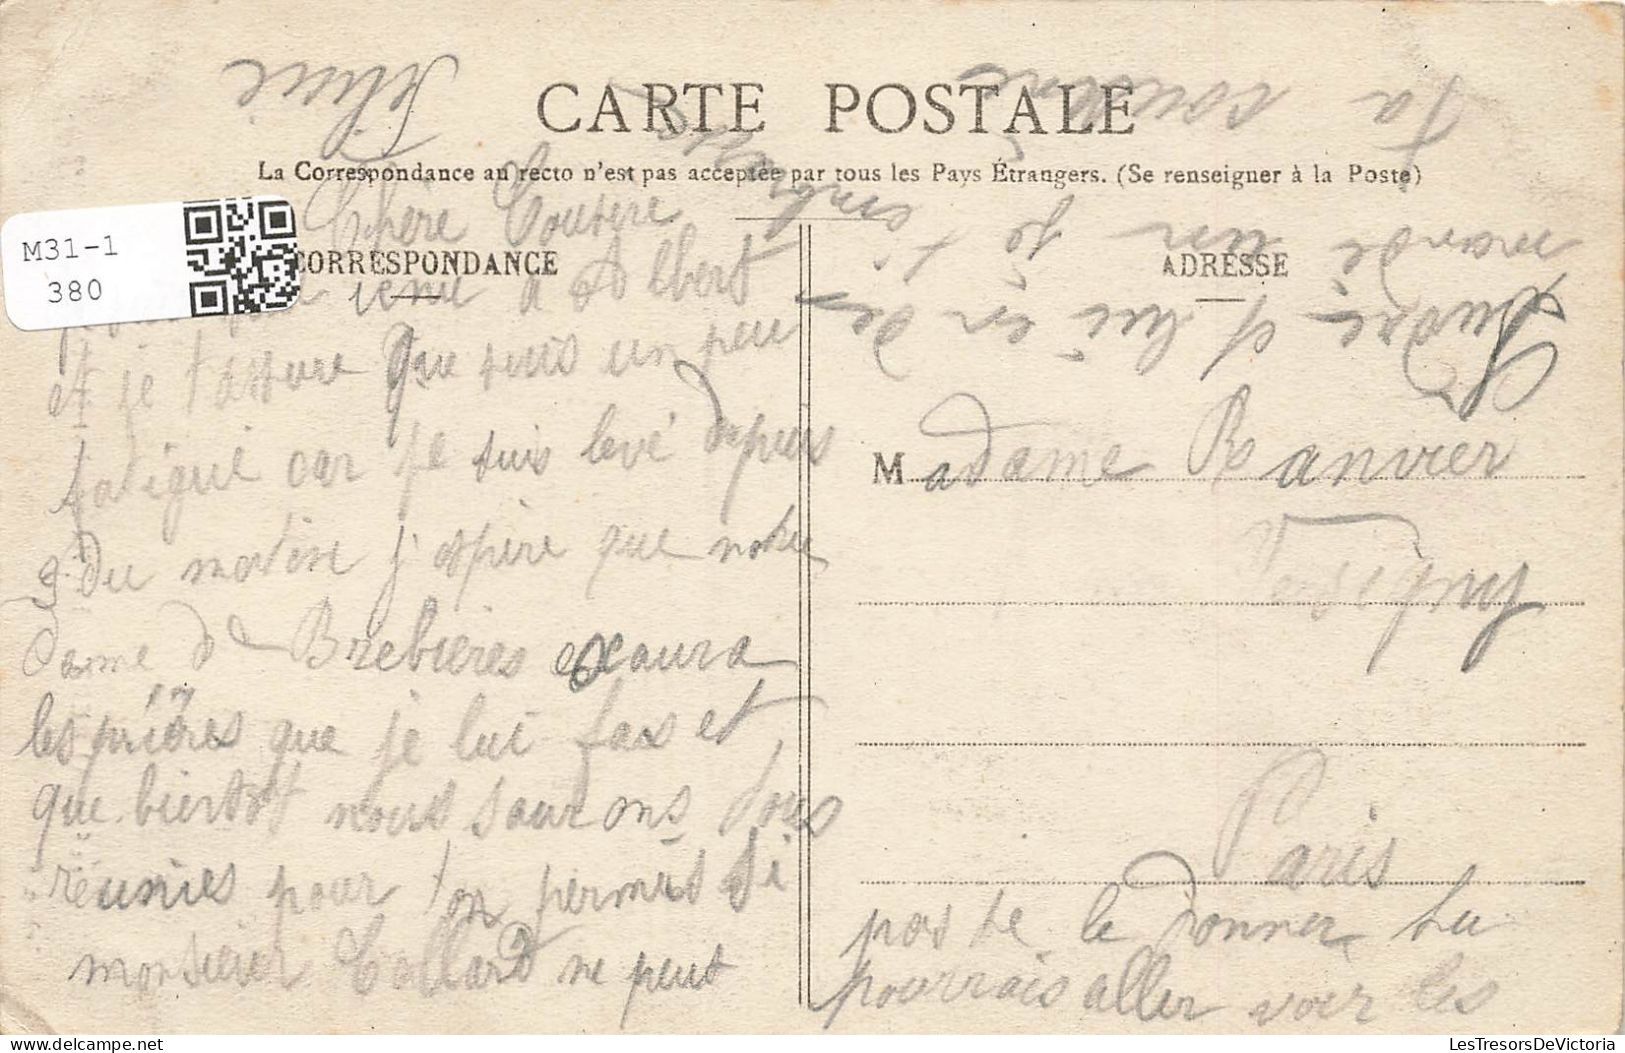 CARTE POSTALE
La Correspondance au recto n'est pas acceptée par tous les Pays Étrangers. (Se renseigner à la Poste)
M31-1
380
CORRESPONDANCE
ADRESSE
Chère Cousine
venu à Albert
et je t'assure que suis un peu
fatigué car je suis levé depuis
3 du matin j'espère que notre
dame de Brebières exaura
les prières que je lui fais et
que bientôt nous saurons tous
réunies pour ton permis si
monsieur Collard ne peut
pas te le donner tu
pourrais aller voir les
André et lui en de
mande un je t'embrasse
Ta cousine
Madame Ranvier
Persigny
Paris
LesTresorsDeVictoria-delcampe.net